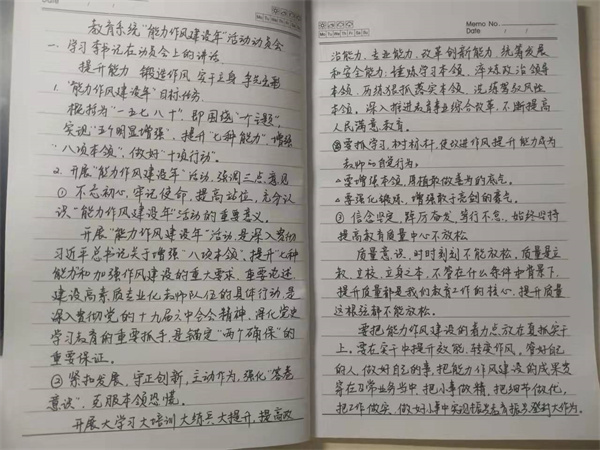 Page
Mo Tu We Th Fr Sa Su
教育系统"能力作风建设年"活动动员会
一、学习李书记在动员会上的讲话
提升能力 锻造作风 实干立身 争先出彩
1."能力作风建设年"目标任务
根据为"一五七八十",即围绕"一个主题",
实现"五个明显增强",提升"七种能力",增强
"八项本领",做好"十项行动"。
2.开展"能力作风建设年"活动,强调三点意见
①不忘初心,牢记使命,提高站位,充分认
识"能力作风建设年"活动的重要意义。
开展"能力作风建设年"活动,是深入贯彻
习近平总书记关于增强"八项本领",提升"七种
能力"和加强作风建设的重大要求、重要论述,
建设高素质专业化教师队伍的具体行动,是
深入贯彻党的十九届六中全会精神,深化党史
学习教育的重要抓手,是锚定"两个确保"的
重要保证。
②紧扣发展,守正创新,主动作为,强化"答卷
意识",克服本领恐慌。
开展大学习大培训大练兵大提升,提高政
Memo No.
Mo Tu We Th Fr Sa Su
Date / /
治能力、专业能力、改革创新能力、统筹发展
和安全能力,锤炼学习本领、淬炼政治领导
本领、历练狠抓落实本领、洗练驾驭风险
本领。深入推进教育事业综合改革,不断提高
人民满意教育。
要抓学习、使改进作风提升能力成为
教师的自觉行为。
△要增强本领,厚植敢做善为的底气。
△要强化锻炼,增强敢于亮剑的勇气。
③信念坚定,踔厉奋发,笃行不怠,始终坚持
提高教育质量中心不放松
质量意识,时时刻刻不能放松,质量是立
教、立校、立身之本,不管在什么条件和背景下,
提升质量都是我们教育工作的核心,提升质量
这根弦都不能放松。
要把能力作风建设的着力点放在真抓实干
上。要在实干中提升效能、转变作风。管好自己
的人,做好自己的事,把能力作风建设的成果贯
穿在日常业务当中,把小事做精,把细节做优,
把工作做实,做好小事中实现